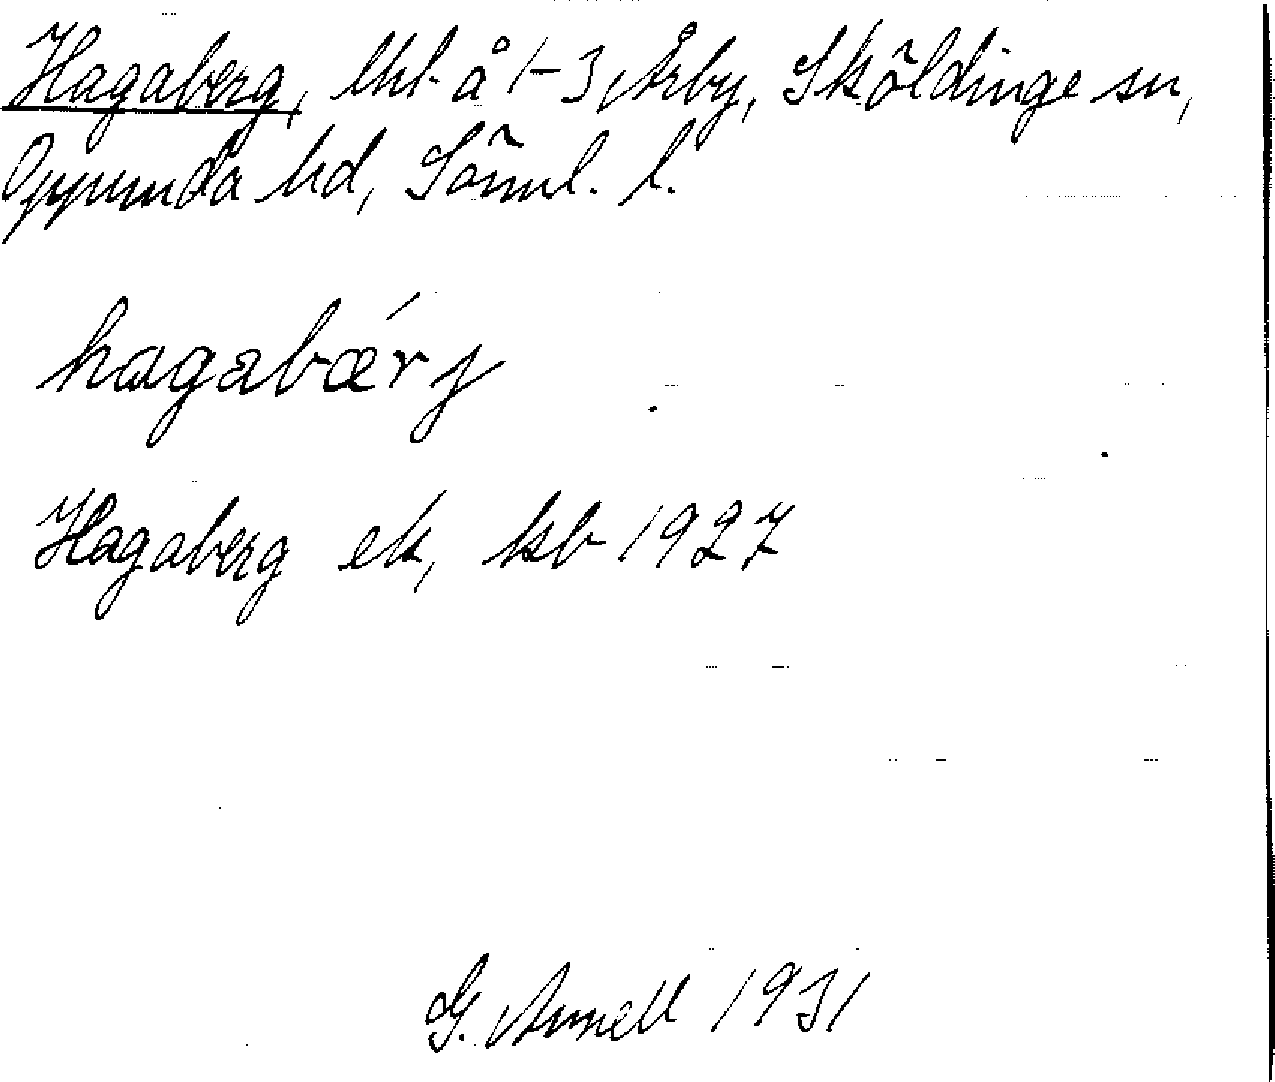 Hagaberg, lht å 1-3 Årby, Sköldinge sn,
Oppunda hd, Söml. l.
hagabǽrj
Hagaberg ek, kb 1927
G. Arnell 1931